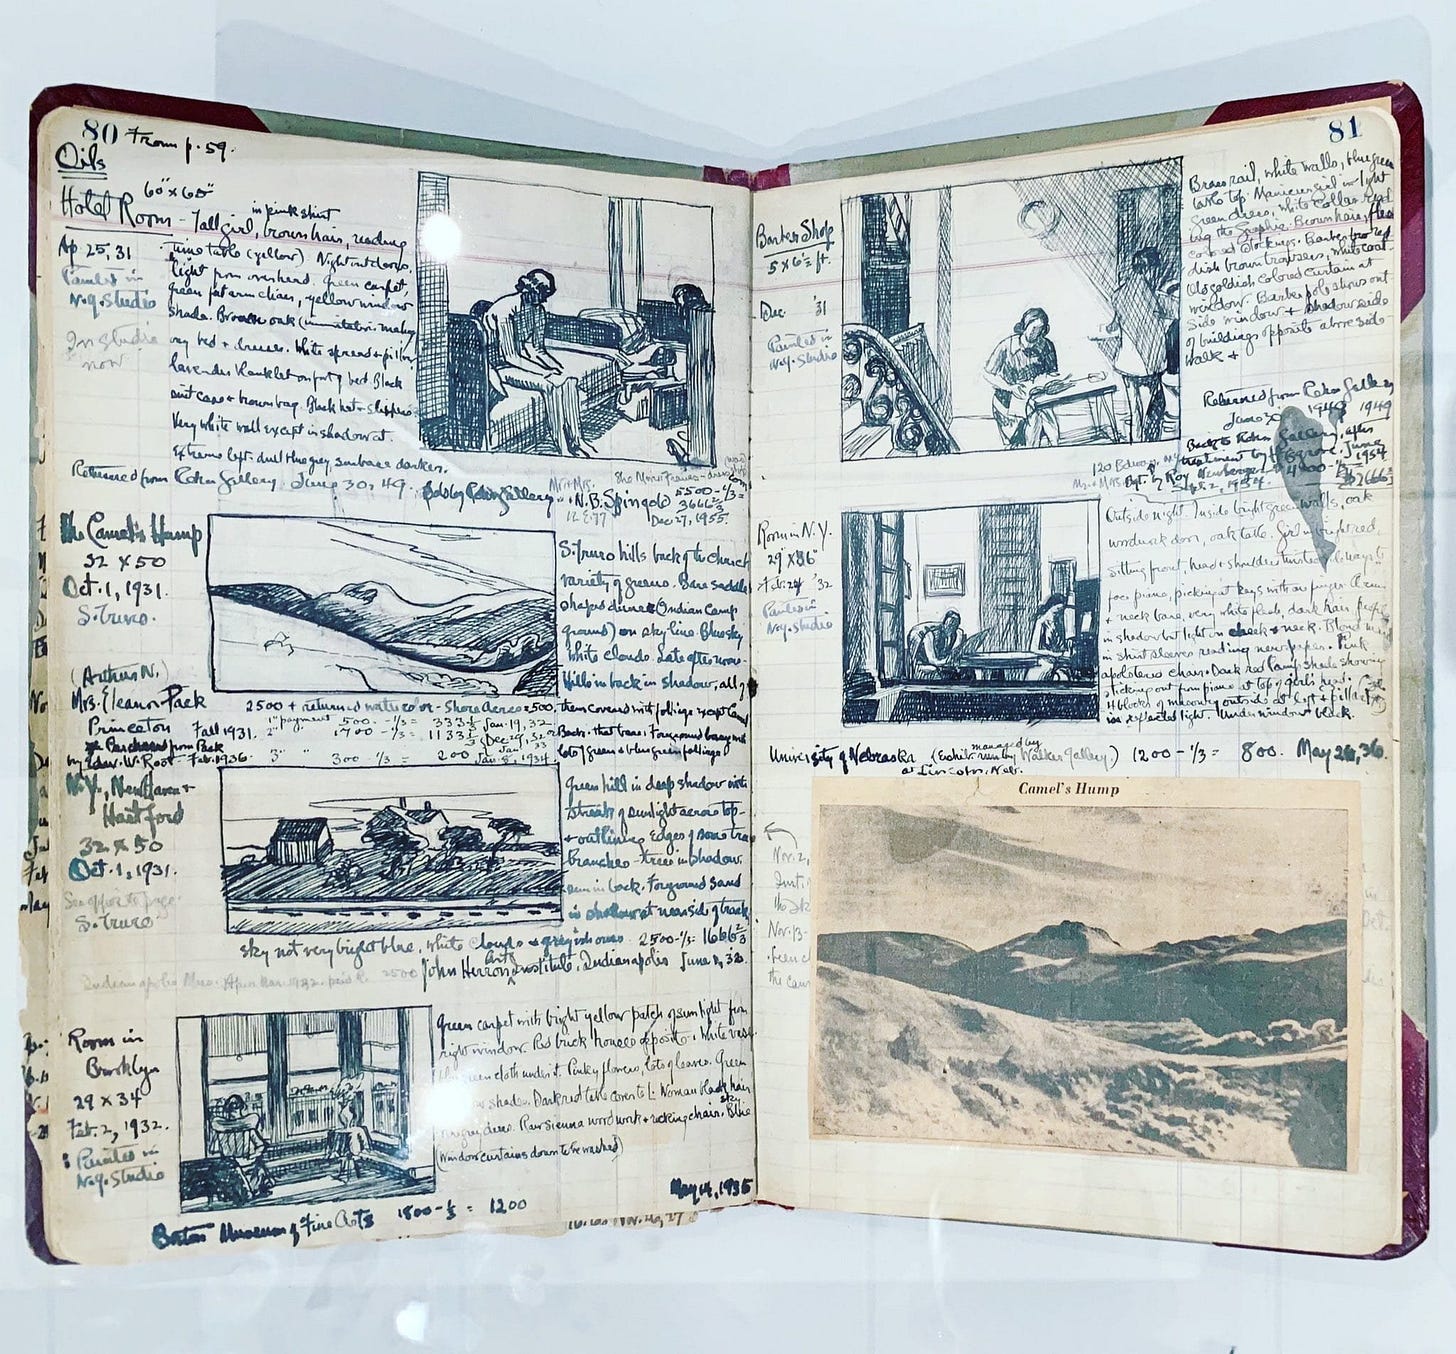 80 From p. 59.
Oils
60" x 65"
Hotel Room - Tall girl, brown hair, reading
in pink shirt
Ap 25, 31
Painted in
N.Y. Studio
In Studio
now
time table (yellow) Night out doors.
light from overhead. Green carpet,
green fat arm chair, yellow window
shade. Brown oak (immitation mahog
any bed + dresser. White spread + pillow
lavender blanket on foot of bed. Black
suit case + brown bag. Black hat + slippers
Very white wall except in shadow at
Extreme left. dull blue grey, surbase darker.
Returned from Rehn Gallery June 30, 49.
Sold by Rehn Gallery
Mr + Mrs.
N.B. Spingold 5500 - 1/3 =
3666 2/3
12 E. 77
Dec 27, 1955.
The Camel's Hump
32 x 50
Oct. 1, 1931.
S. Truro.
S. Truro hills back of the church
variety of greens. Bare saddle
shaped dune (Indian Camp
ground) on sky line. Blue sky
white clouds. Late afternoon
Hills in back in shadow, all of
them covered with foliage except Camel
Back, that bare. Foreground
lots of green + blue green foliage
(Arthur N.)
Mrs. Eleanor Pack
Princeton Fall 1931.
Purchased from Pack
by Edw. W. Root - Feb. 1936.
2500 + returned water color - Shore Acres = 500,
1st payment 500. - 1/3 = 333 1/3 Jan. 19, 32
2" 1700 - 1/3 = 1133 1/3 (Dec 29, 32 or Jan. 33
3" " 300 1/3 = 200 Jan. 8, 1934.
N.Y., New Haven +
Hartford
32 x 50
Oct. 1, 1931.
See opposite page.
S. Truro
Green hill in deep shadow with
streak of sunlight across top -
+ outlining edges of some tree
branches - trees in shadow.
sun in back. Forground sand
in shadow at near side of track
sky not very bright blue, white clouds + greyish ones. 2500 - 1/3 = 1666 2/3
John Herron Art Institute, Indianapolis June 1, 32.
Room in
Brooklyn
29 x 34
Feb. 2, 1932.
Painted in
N.Y. Studio
Green carpet with bright yellow patch of sun light from
right window. Red brick houses opposite. White vase
blue green cloth under it. Pinky flowers, lots of leaves. Green
shades. Dark red table cover to L. Woman black hair
blue grey dress. Raw sienna wood work + rocking chair. Blue sky.
(Window curtains down to be washed)
May 14, 1935
Boston Museum of Fine Arts 1800 - 1/3 = 1200
81
Barber Shop
5 x 6 1/2 ft.
Dec. '31
Painted in
N.Y. Studio
Brass rail, white walls, blue green
table top. Manicure girl in light
green dress, white collar read
ing the Graphic. Brown hair, flesh
colored stockings. Barber in red
dish brown trousers, white coat.
Old goldish colored curtain at
window. Barber pole shows out
side window + shadow side
of buildings opposite above side-
walk +
Returned from Rehn Gallery
June 30 1949
Back to Rehn Gallery, after
June
1954
Bgt. by Roy Neuberger
Sept 2, 1954
Room in N.Y.
29 x 36"
Feb. 24 '32
Painted in
N.Y. Studio
Outside night. Inside bright green walls, oak
woodwork door, oak table. Girl in red,
sitting front, head + shoulders twisted sideways to
face piano, picking at keys with one finger. Arms
+ neck bare, very white flesh, dark hair, face
in shadow but light on cheek + neck. Blond man
in shirt sleeves reading newspaper. Pink
upolstered chair. Dark red lamp shade showing
sticking out from piano at top of girl's head.
4 blocks of masonry outside at left + pillar
in reflected light. Under window black.
University of Nebraska (Exhib. managed by Walker Gallery.) 1200 - 1/3 = 800. May 26, 36.
at Lincoln, Neb.
Camel's Hump
Nov. 2,
Nov. 13-